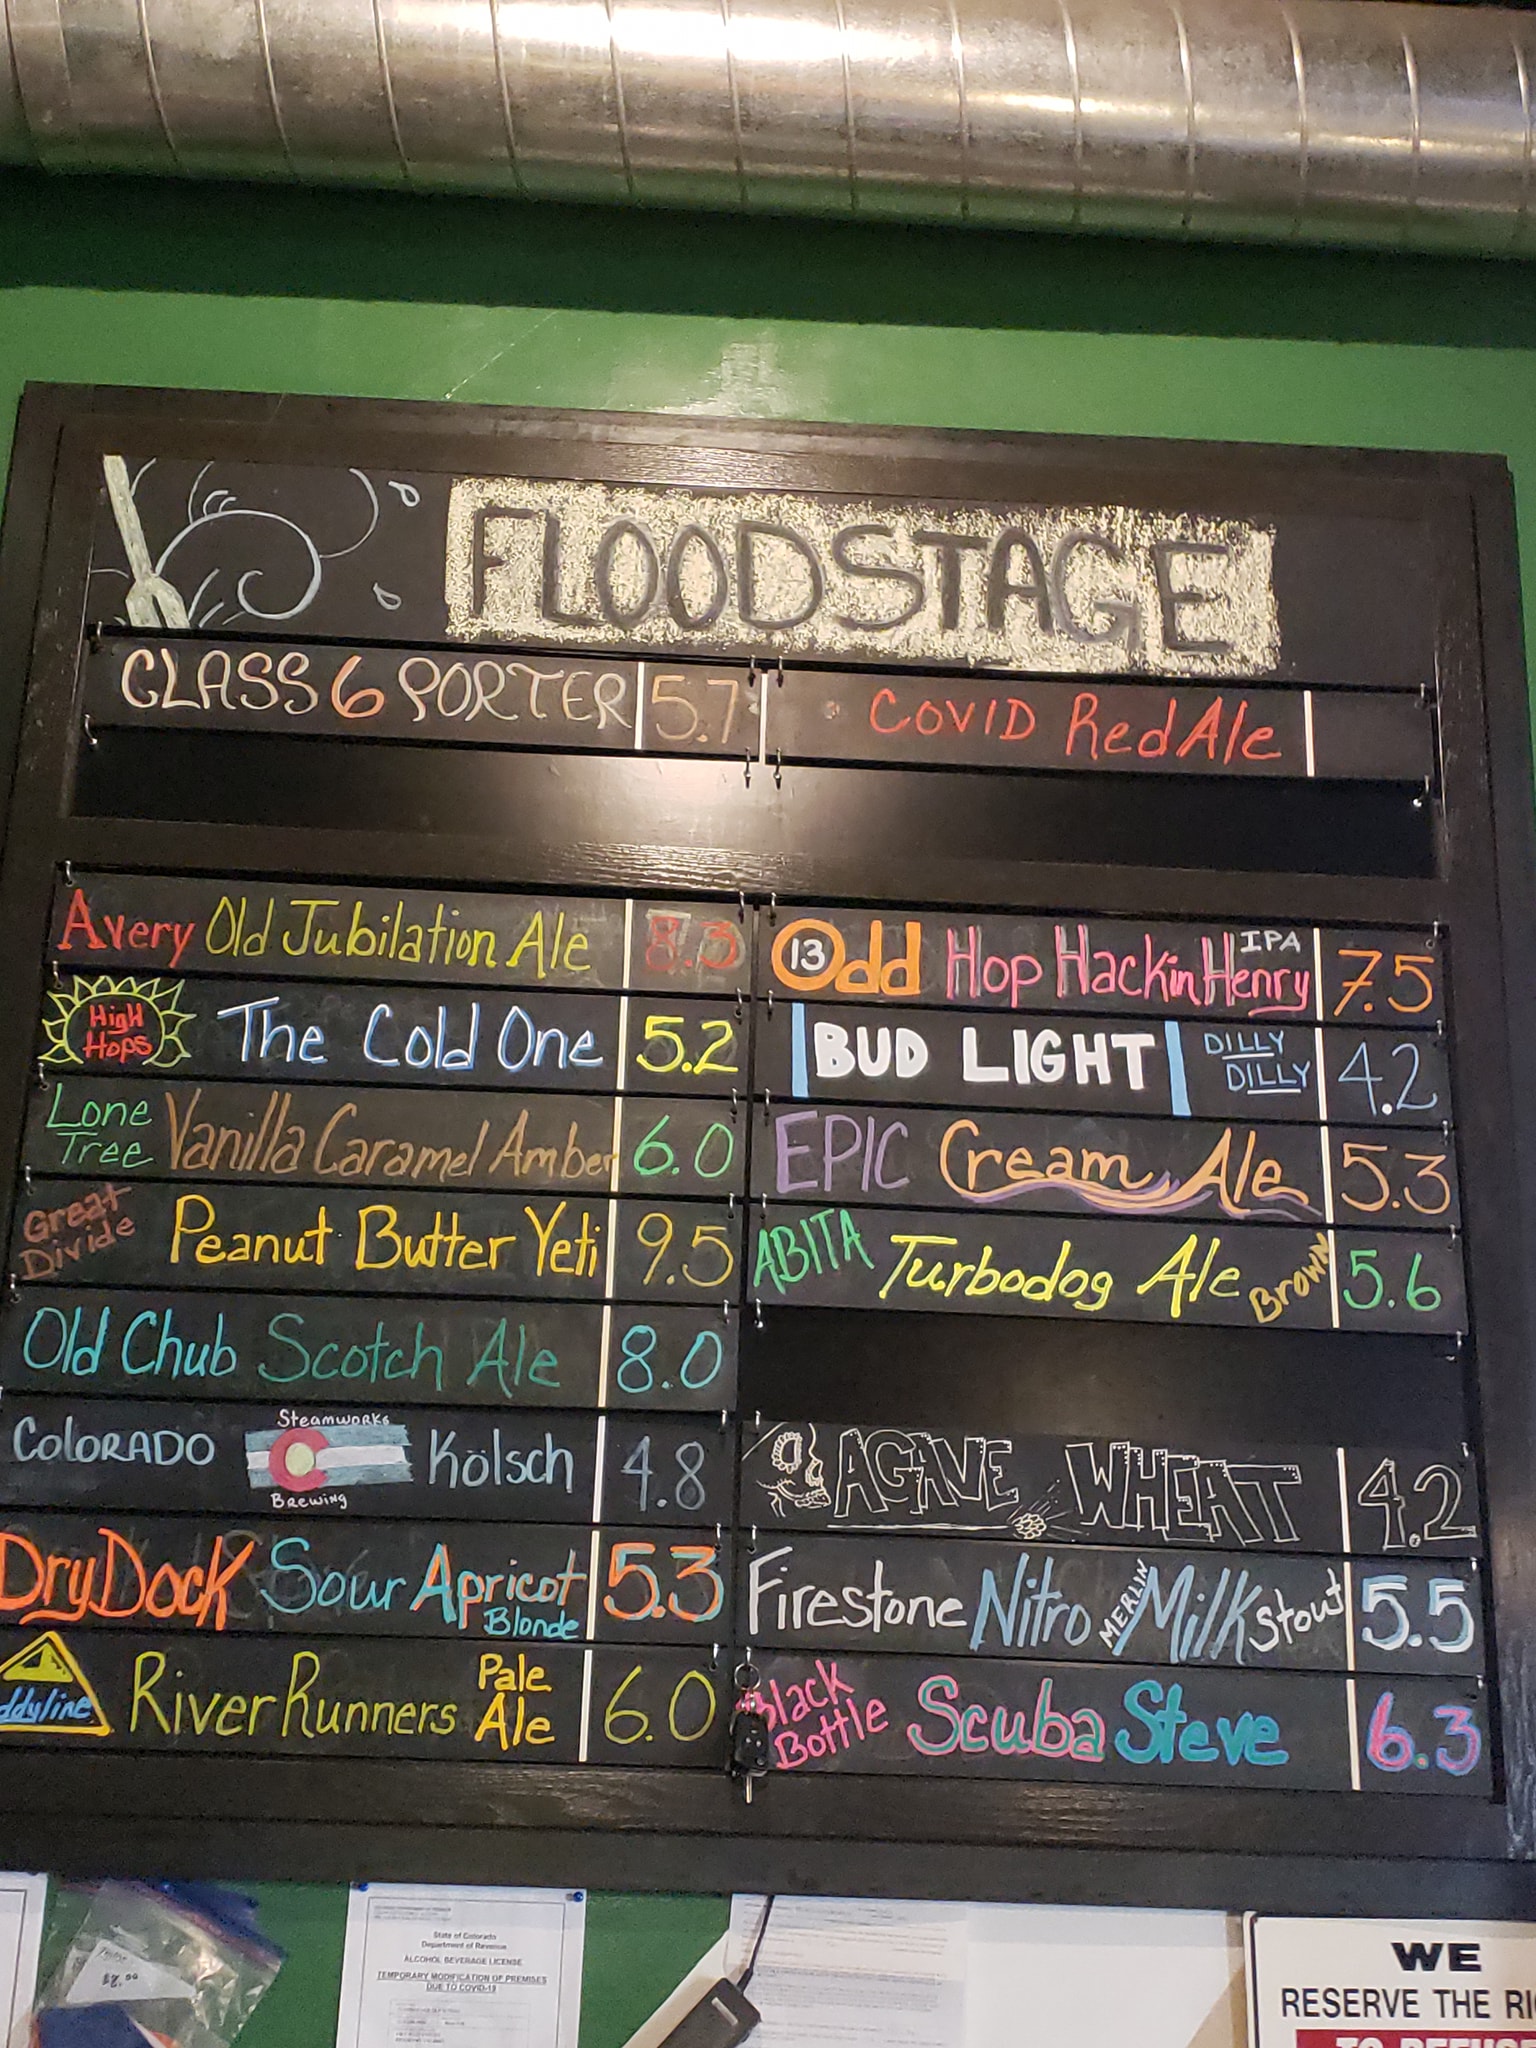 FLOODSTAGE
CLASS 6 PORTER 5.7
COVID Red Ale
Avery Old Jubilation Ale 8.3
High Hops The Cold One 5.2
Lone Tree Vanilla Caramel Amber 6.0
Great Divide Peanut Butter Yeti 9.5
Old Chub Scotch Ale 8.0
COLORADO Steamworks Brewing Kölsch 4.8
DryDock Sour Apricot Blonde 5.3
ddyline River Runners Pale Ale 6.0
Odd 13 Hop Hackin Henry IPA 7.5
BUD LIGHT DILLY DILLY 4.2
EPIC Cream Ale 5.3
ABITA Turbodog Ale Brown 5.6
AGAVE WHEAT 4.2
Firestone Nitro MERLIN Milk Stout 5.5
Black Bottle Scuba Steve 6.3
State of Colorado
Department of Revenue
ALCOHOL BEVERAGE LICENSE
TEMPORARY MODIFICATION OF PREMISES
DUE TO COVID-19
WE
RESERVE THE RI